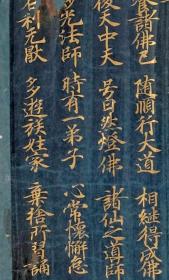 養諸佛已 隨順行大道 相継得成佛
後天中天 号曰然燈佛 諸仙之導師
光法師 時有一弟子 心常懷懈怠
名利无猒 多遊族姓家 棄捨所習誦